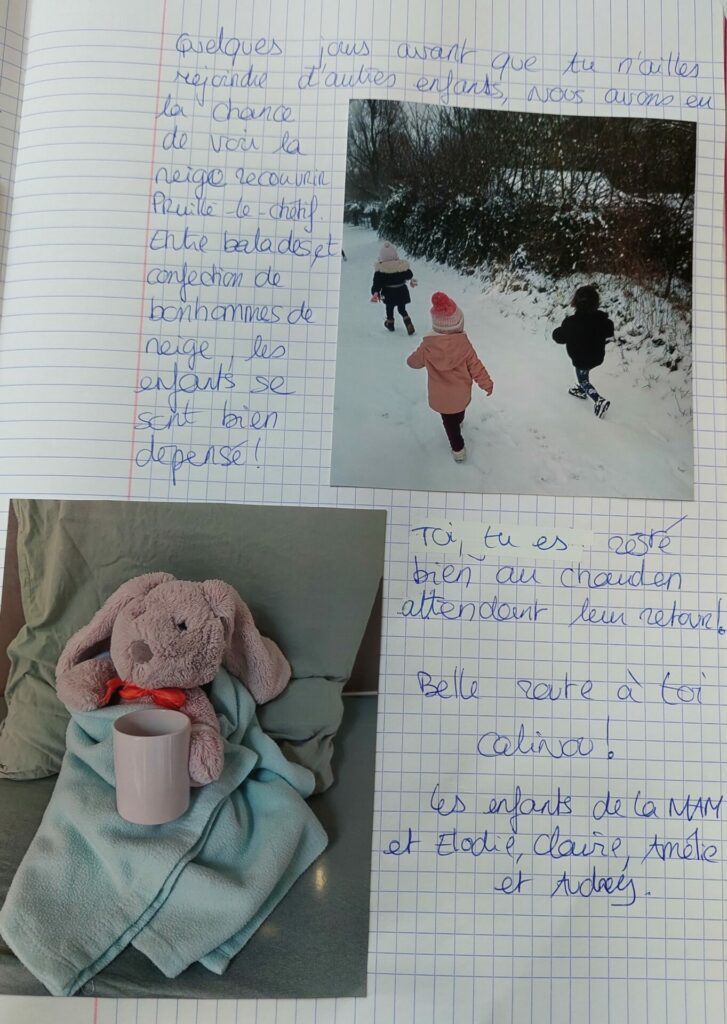 Quelques jours avant que tu n'ailles
rejoindre d'autres enfants, nous avons eu
la chance
de voir la
neige recouvrir
Pruillé-le-chétif.
Entre balades, et
confection de
bonhommes de
neige, les
enfants se
sont bien
dépensé!
Toi, tu es resté
bien au chaud en
attendant leur retour!
Belle route à toi
Calinou!
Les enfants de la MAM
et Elodie, Claire, Amélie
et Audrey.